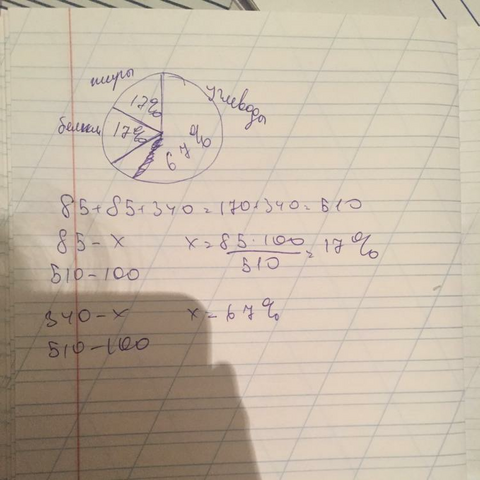 жиры
углеводы
17%
белки
17%
67%
85+85+340=170+340=510
85-x x=85·100/510=17%
510-100
340-x x-67%
510-100